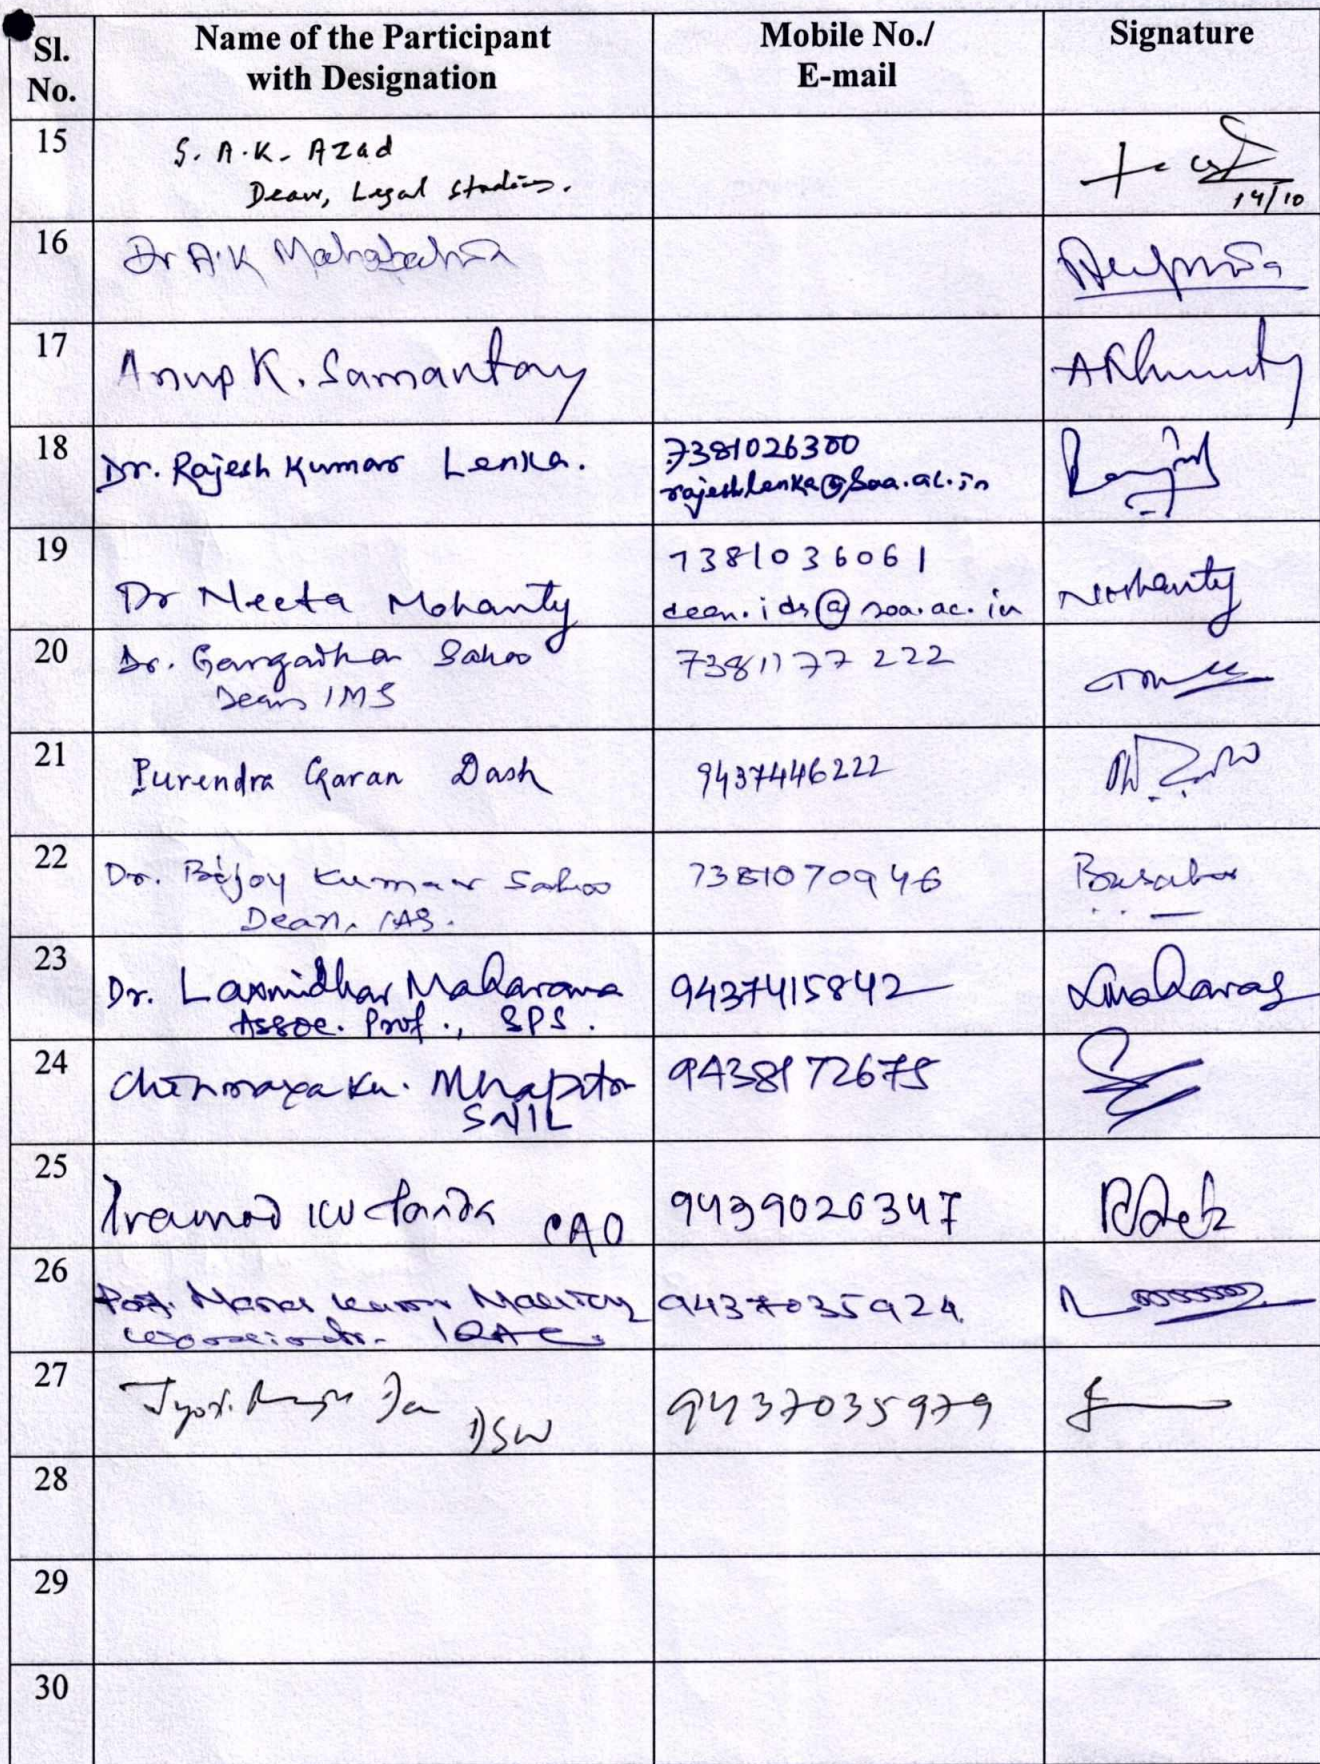 Sl. No.
Name of the Participant with Designation
Mobile No./ E-mail
Signature
15
S. A.K. Azad
Dean, Legal Studies.
14/10
16
Dr A.K Mahapatra
17
Anup K. Samantaray
18
Dr. Rajesh Kumar Lenka.
7381026300
rajeshlenka@soa.ac.in
19
Dr Neeta Mohanty
7381036061
dean.ids@soa.ac.in
NMohanty
20
Dr. Gangadhar Sahoo
Dean IMS
7381177222
21
Purendra Charan Dash
9437446222
22
Dr. Bijoy Kumar Sahoo
Dean, IAS.
7381070946
23
Dr. Laxmidhar Maharana
Assoc. Prof., SPS.
9437415842
24
Chinmaya Ku. Mhapatra
SNIL
9438172675
25
Pramod Ku Panda CAO
9439026347
26
Prof. Manas Kumar Mallick
Coordinator. IQAC
9437035924
27
Jyoti Das
DSW
9437035979
28
29
30